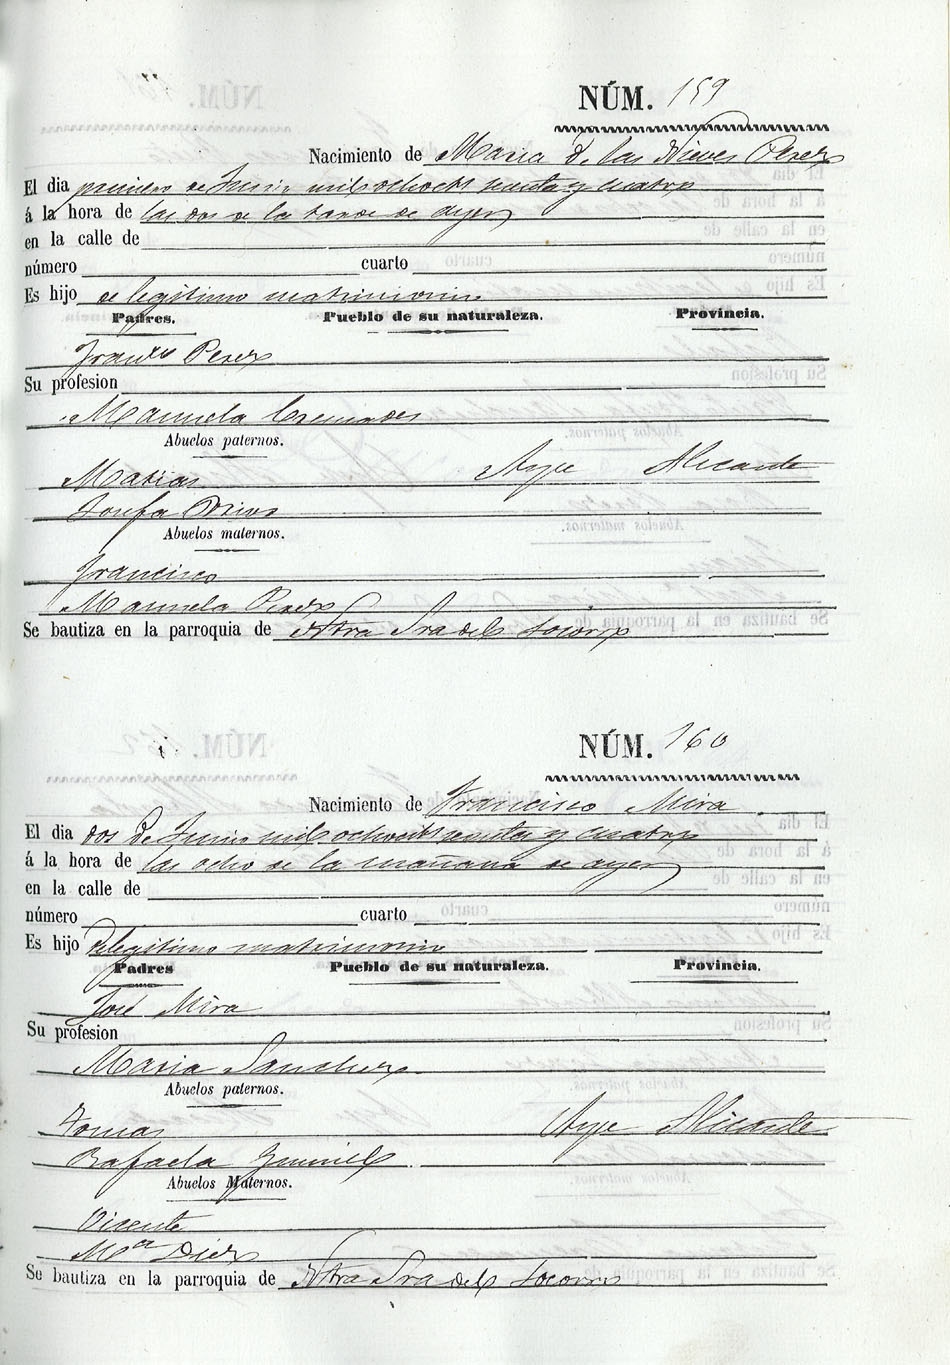 NÚM. 159
Nacimiento de Maria de las Nieves Perez
El dia primero de Junio mil ochocts sesenta y cuatro
á la hora de las dos de la tarde de ayer
en la calle de
número cuarto
Es hijo de legitimo matrimonio
Padres. Pueblo de su naturaleza. Provincia.
Franco Perez
Su profesion
Manuela Cremades
Abuelos paternos.
Matias Aspe Alicante
Josefa
Abuelos maternos.
Francisco
Manuela Perez
Se bautiza en la parroquia de Ntra Sra del Socorro
NÚM. 160
Nacimiento de Francisco Mira
El dia dos de Junio mil ochocts sesenta y cuatro
á la hora de las ocho de la mañana de ayer
en la calle de
número cuarto
Es hijo de legitimo matrimonio
Padres Pueblo de su naturaleza. Provincia.
José Mira
Su profesion
Maria Sanchez
Abuelos paternos.
Tomas Aspe Alicante
Rafaela
Abuelos Maternos.
Vicente
Ma Diez
Se bautiza en la parroquia de Ntra Sra del Socorro